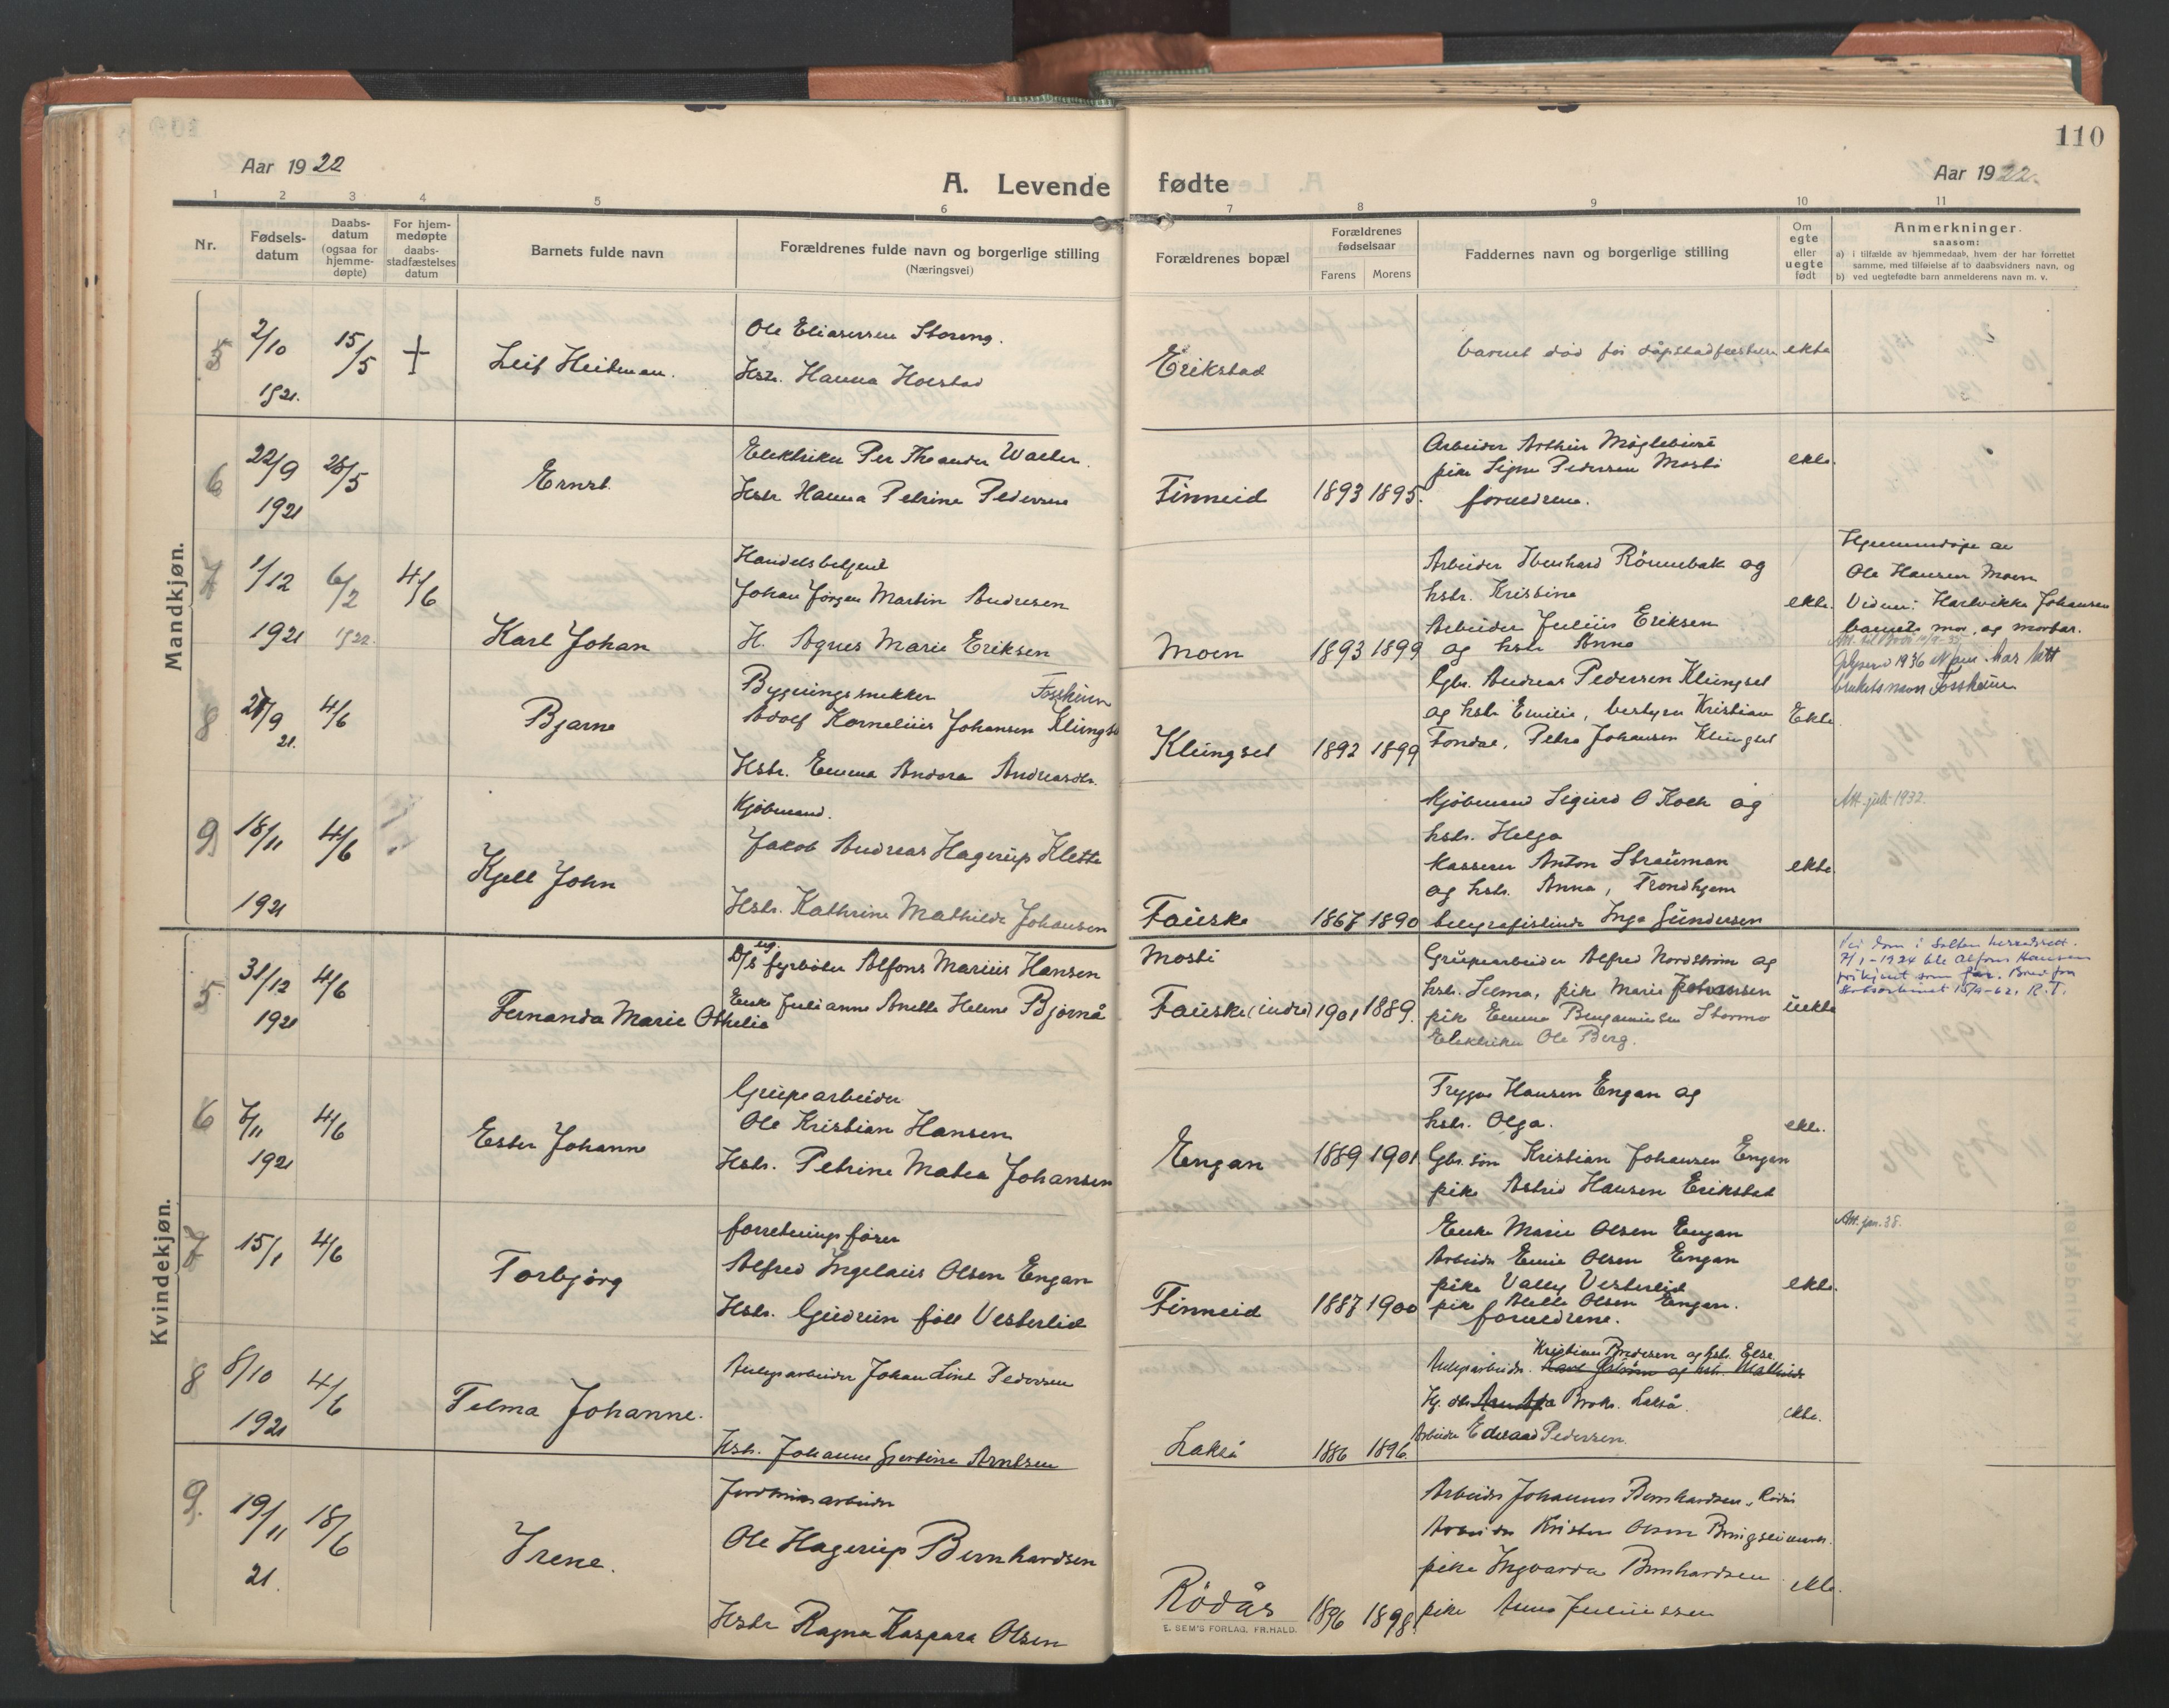 110
Aar 1922
Aar 1922.
A. Levende fødte
1 2 3 4 5 6 7 8 9 10 11
Nr.
Fødselsdatum
Daabsdatum (ogsaa for hjemmedøpte)
For hjemmedøpte daabsstadfæstelses datum
Barnets fulde navn
Forældrenes fulde navn og borgerlige stilling
(Næringsvei)
Forældrenes bopæl
Forældrenes fødselsaar
Farens Morens
Faddernes navn og borgerlige stilling
Om egte eller uegte født
Anmerkninger.
saasom:
a) i tilfælde av hjemmedaab, hvem der har forrettet
samme, med tilføielse af to daabsvidners navn, og
b) ved uegtefødte barn anmelderens navn m. v.
Mandkjøn.
5 2/10 1921. 15/5 + Leif Heitman.
Ole Eliasersen Storeng.
Hstr. Hanna Hoestad
Erikstad
barnet død før dåpstadfestelse ekte
6 22/9 1921 28/5 Ernst.
Elektriker Per Theander Walter.
Hstr Hanna Petrine Pedersen
Finneid 1893 1895.
Arbeider Arthur
pike Signe Pedersen Mosti
foreldrene.
ekte.
7 1/12 1921 6/2 1922. 4/6 Karl Johan
Handelsbetjent
Johan Jörgen Martin Andresen
H. Agnes Marie Eriksen
Moen 1893 1899
Arbeider Edvard Rönnebak og
hstr. Kristine
Arbeider Julius Eriksen
og hstr Anna
ekte.
Hjemmedöpt av
Ole Hansen Moen
Vidner: Hartvikka Johansen
barnets mor, og morbar.
8 21/9 21. 4/6 Bjarne
Bygningssnekker Fossheim
Adolf Kornelius Johansen Klungset
Hstr. Emma Andora Andreasdtr.
Klungset 1892 1899
Gbr. Andreas Pedersen Klungset
og hstr Emilie, bestyrer Kristian
Fondal, Petra Johansen Klungset
Ekte.
1936 har tatt
bruksnavn Fossheim
9 18/11 1921 4/6 Kjell John
Kjöbmand.
Jakob Andreas Hagerup Klette
Hstr. Kathrine Mathilde Johansen
Fauske 1867 1890
Kjöbmand Sigurd O Koch og
hstr. Helga
Kasserer Anton Strauman
og hstr. Anna, Trondhjem
telegrafistinde Inga Gundersen
ekte
Att. juli 1932.
Kvindekjøn.
5 31/12 1921 4/6 Fernanda Marie Othelie
D/S ug. fyrböter Alfons Marius Hansen
Enke Julianne Anette Helene Bjørnå
Mosti
Fauske (indre) 1901 1889.
Grupearbeider Alfred Nordström og
hstr. Selma, pike Marie Johansen
pike Emma Benjaminsen Stormo
Elektriker Ole Berg.
uekte
Ved dom i Salten herredsrett.
7/1-1924 ble Alfons Hansen
frikjent som far. Brev fra
15/9-62. R.T.
6 7/11 1921 4/6 Ester Johanne
Grupearbeider
Ole Kristian Hansen
Hstr. Petrine Matea Johansen
Engan 1889 1901
Trygve Hansen Engan og
hstr. Olga.
Gbr. sön Kristian Johansen Engan
pike Astrid Hansen Erikstad
ekte.
7 15/1 4/6 Torbjörg
forretningsförer
Alfred Ingelaus Olsen Engan
Hstr. Gudrun föll Vesterlid
Finneid 1887 1900
Enke Marie Olsen Engan
Arbeider Einie Olsen Engan
pike Vally Vesterlid
pike Alette Olsen Engan.
foreldrene.
ekte.
Att. jan. 38.
8 8/10 1921 4/6 Telma Johanne.
Anlegsarbeider Johan Link Pedersen
Hstr. Johanne Gjertine Arntsen
Lakså 1886 1896.
Kristian Pedersen og hstr. Else
Anlegsarbeider og hstr. Mathilde
Lakså.
Arbeider Edvard Pedersen.
ekte.
9. 19/11 21. 18/6 Irene.
Jernbanearbeider
Ole Hagerup Bernhardsen
Hstr Ragna Kaspara Olsen
Rödås 1896 1898
Arbeider Johannes Bernhardsen, Rödås
Arbeider Kristen Olsen
pike Ingvarda Bernhardsen
pike Anna Juliussen
ekte.
E. SEM'S FORLAG, FR.HALD.